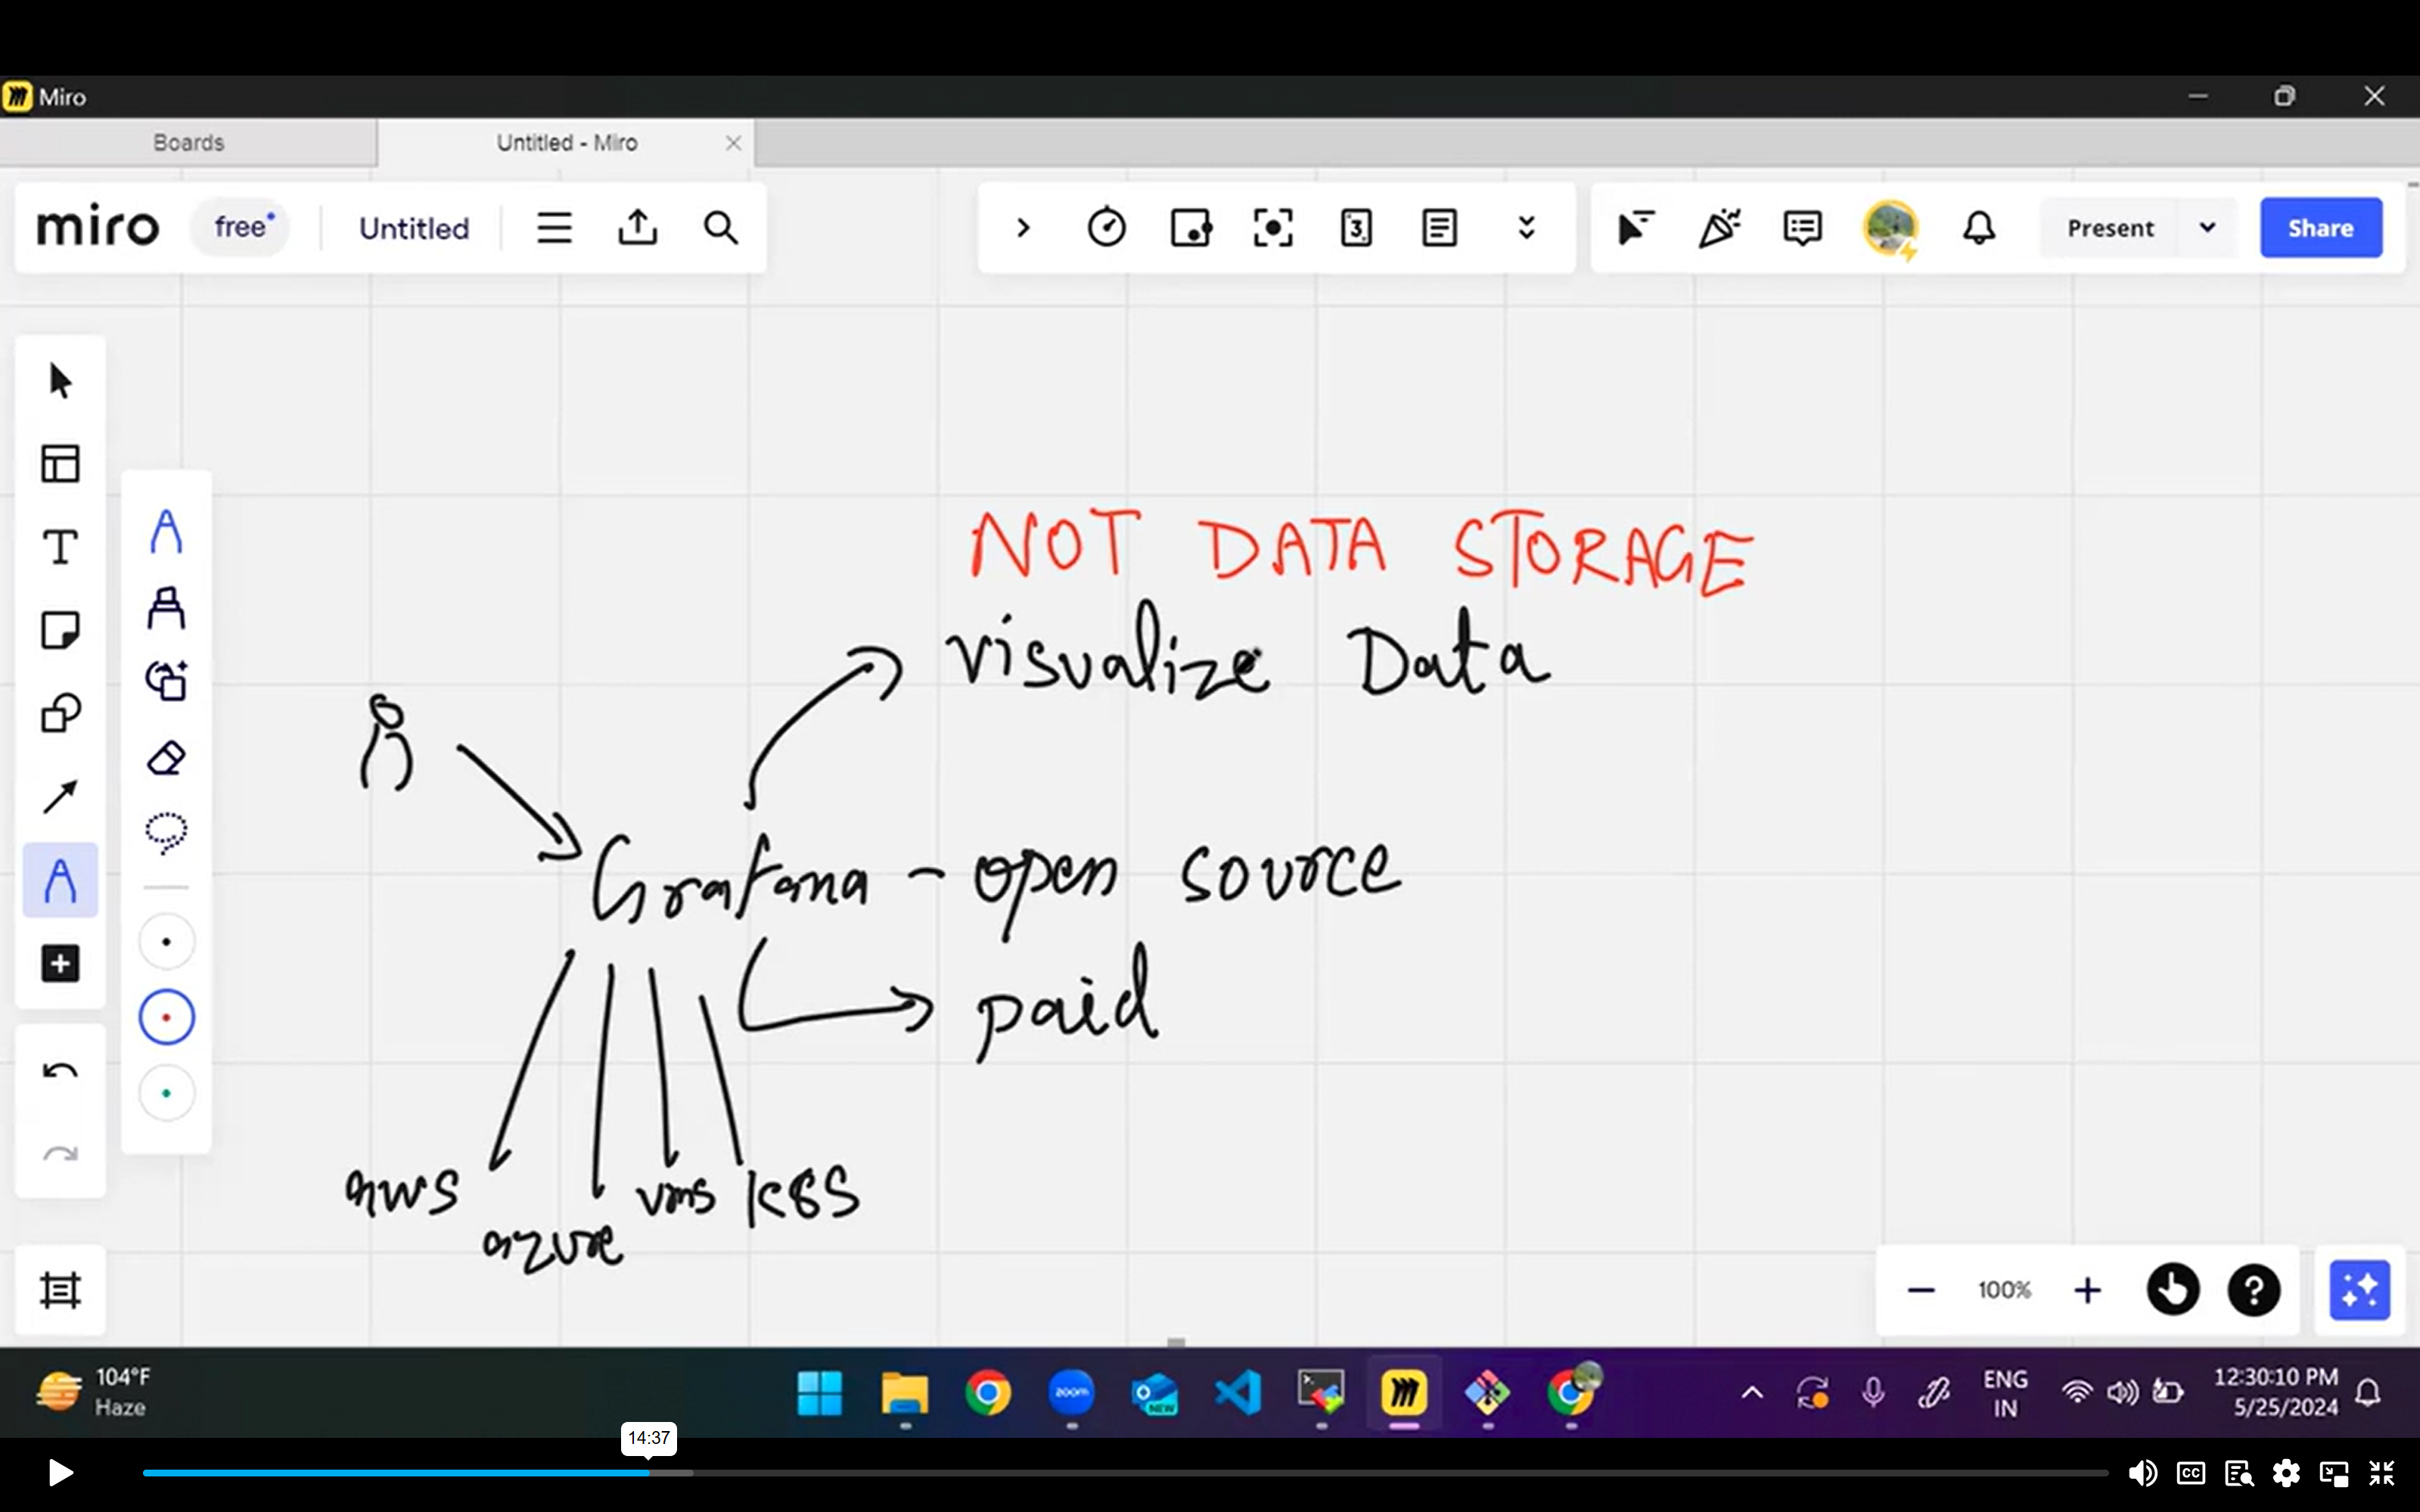 Miro
Boards
Untitled - Miro
miro
free
Untitled
3
Present
Share
NOT DATA STORAGE
visualize Data
Grafana - open source
paid
aws
azure
vms
K8S
100%
?
104°F
Haze
zoom
NEW
ENG
IN
12:30:10 PM
5/25/2024
14:37
CC